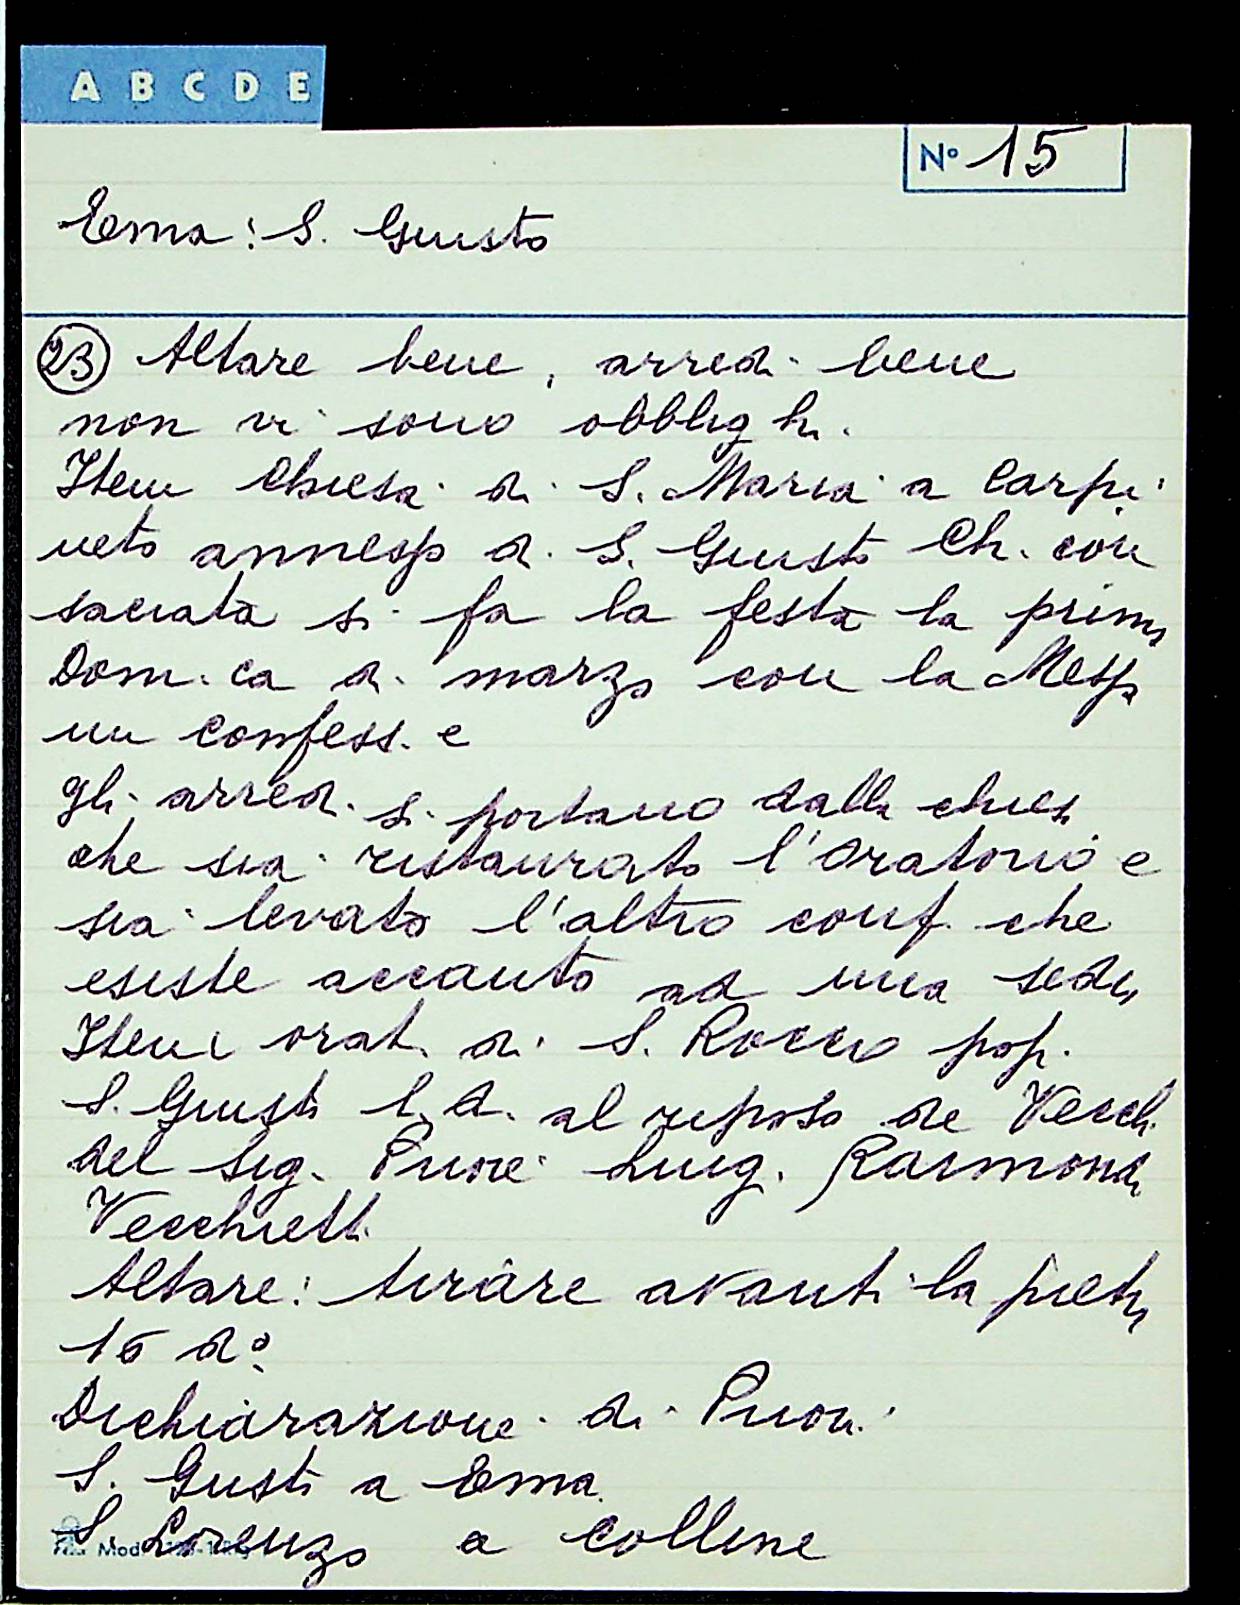 A B C D E
Nº 15
Ema: S. Giusto
23 Altare bene, arredi bene
non vi sono obblighi.
Item Chiesa di S. Maria a Carpi
neto annessa a. S. Giusto Ch. con
sacrata si fa la festa la prima
Dom.ca di marzo con la Messa
un confess. e
gli arredi si portano dalla chiesa
che sia ristaurato l'Oratorio e
sia levato l'altro conf. che
esiste accanto ad una sedia
Item orat. di S. Rocco pop.
S. Giusto l.d. al riposo de Vecch.
del sig. Priore Luigi Raimondi
Vecchietti
Altare: tirare avanti la pietra
15 do
Dichiarazione di Priori
S. Giusto a Ema
S. Lorenzo a Colline
Mod.